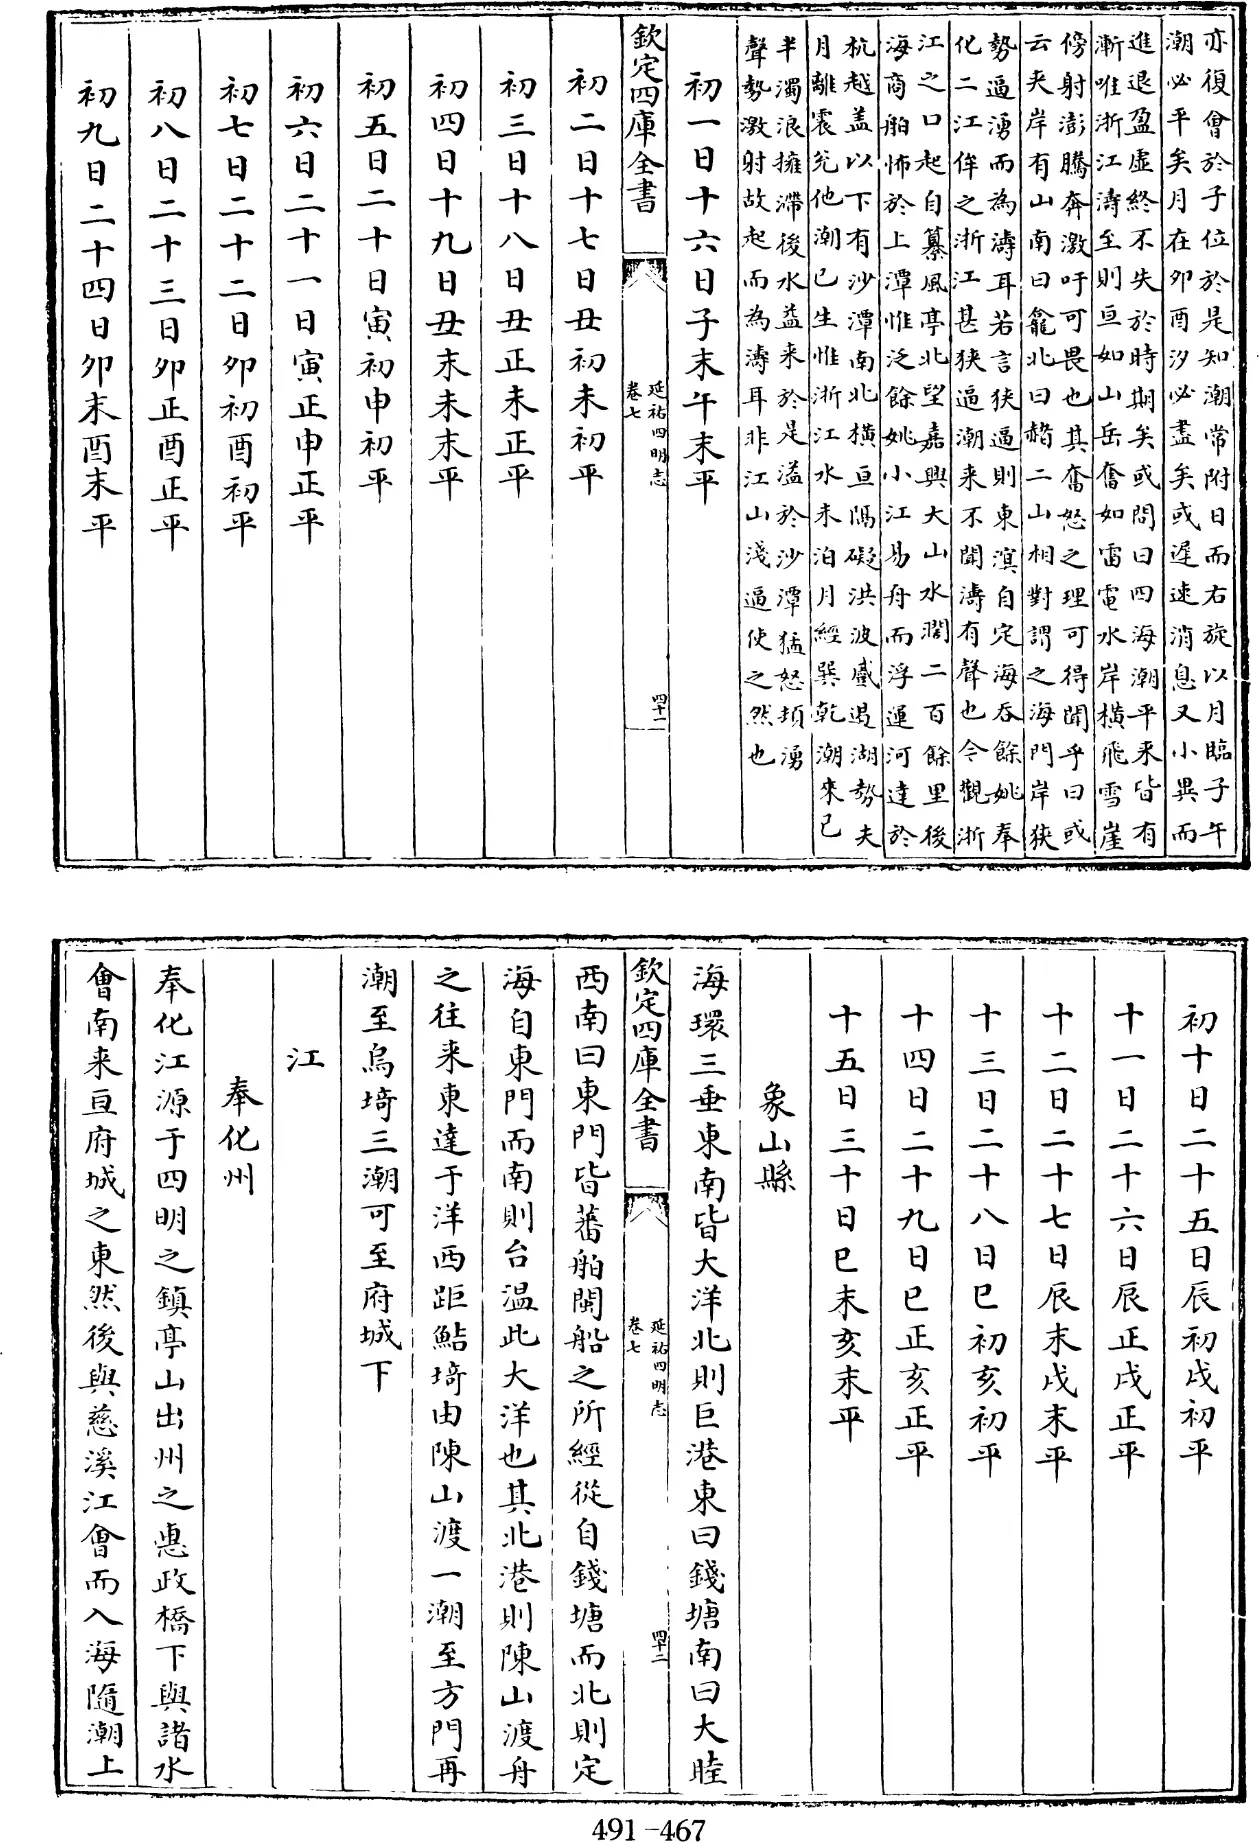 亦復會於子位於是知潮常附日而右旋以月臨子午
潮必平矣月在卯酉汐必盡矣或遲速消息又小異而
進退盈虛終不失於時期矣或問曰四海潮平来皆有
漸唯浙江濤至則亘如山岳奮如雷電水岸横飛雪崖
傍射澎騰奔激吁可畏也其奮怒之理可得聞乎曰或
云夹岸有山南曰龕北曰赭二山相對謂之海門岸狹
勢逼湧而為濤耳若言狹逼則東溟自定海吞餘姚奉
化二江侔之浙江甚狹逼潮来不聞濤有聲也今觀浙
江之口起自纂風亭北望嘉興大山水闊二百餘里後
海商舶怖於上潭惟泛餘姚小江易舟而浮運河達於
杭越盖以下有沙潭南北横亘隔礙洪波蹙遏湖勢夫
月離震兌他潮已生惟浙江水未泊月經巽乾潮來已
半濁浪擁滯後水益来於是溢於沙潭猛怒頓湧
聲勢激射故起而為濤耳非江山淺逼使之然也
初一日十六日子末午末平
欽定四庫全書
延祐四明志
卷七
四十一
初二日十七日丑初未初平
初三日十八日丑正未正平
初四日十九日丑末未末平
初五日二十日寅初申初平
初六日二十一日寅正申正平
初七日二十二日夘初酉初平
初八日二十三日夘正酉正平
初九日二十四日夘末酉末平
初十日二十五日辰初戌初平
十一日二十六日辰正戌正平
十二日二十七日辰末戌末平
十三日二十八日巳初亥初平
十四日二十九日巳正亥正平
十五日三十日巳末亥末平
象山縣
海環三垂東南皆大洋北則巨港東曰錢塘南曰大睦
欽定四庫全書
延祐四明志
卷七
四十二
西南曰東門皆蕃舶閩船之所經從自錢塘而北則定
海自東門而南則台温此大洋也其北港則陳山渡舟
之往来東達于洋西距鮚埼由陳山渡一潮至方門再
潮至烏埼三潮可至府城下
江
奉化州
奉化江源于四明之鎮亭山出州之惠政橋下與諸水
會南来亘府城之東然後與慈溪江會而入海隨潮上
491-467